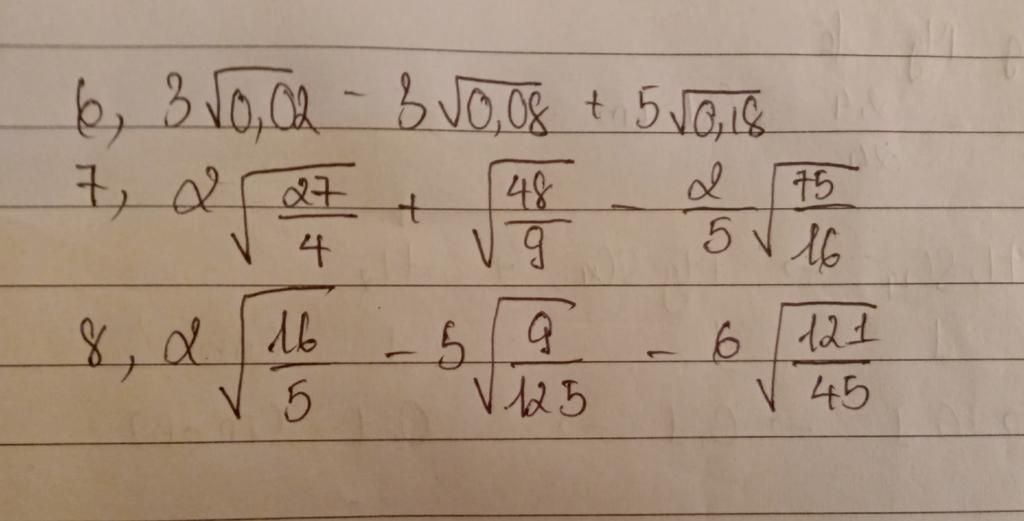 6, 3√0,02 - 3√0,08 + 5√0,18
7, 2√(27/4) + √(48/9) - 2/5√(75/16)
8, 2√(16/5) - 5√(9/125) - 6√(121/45)